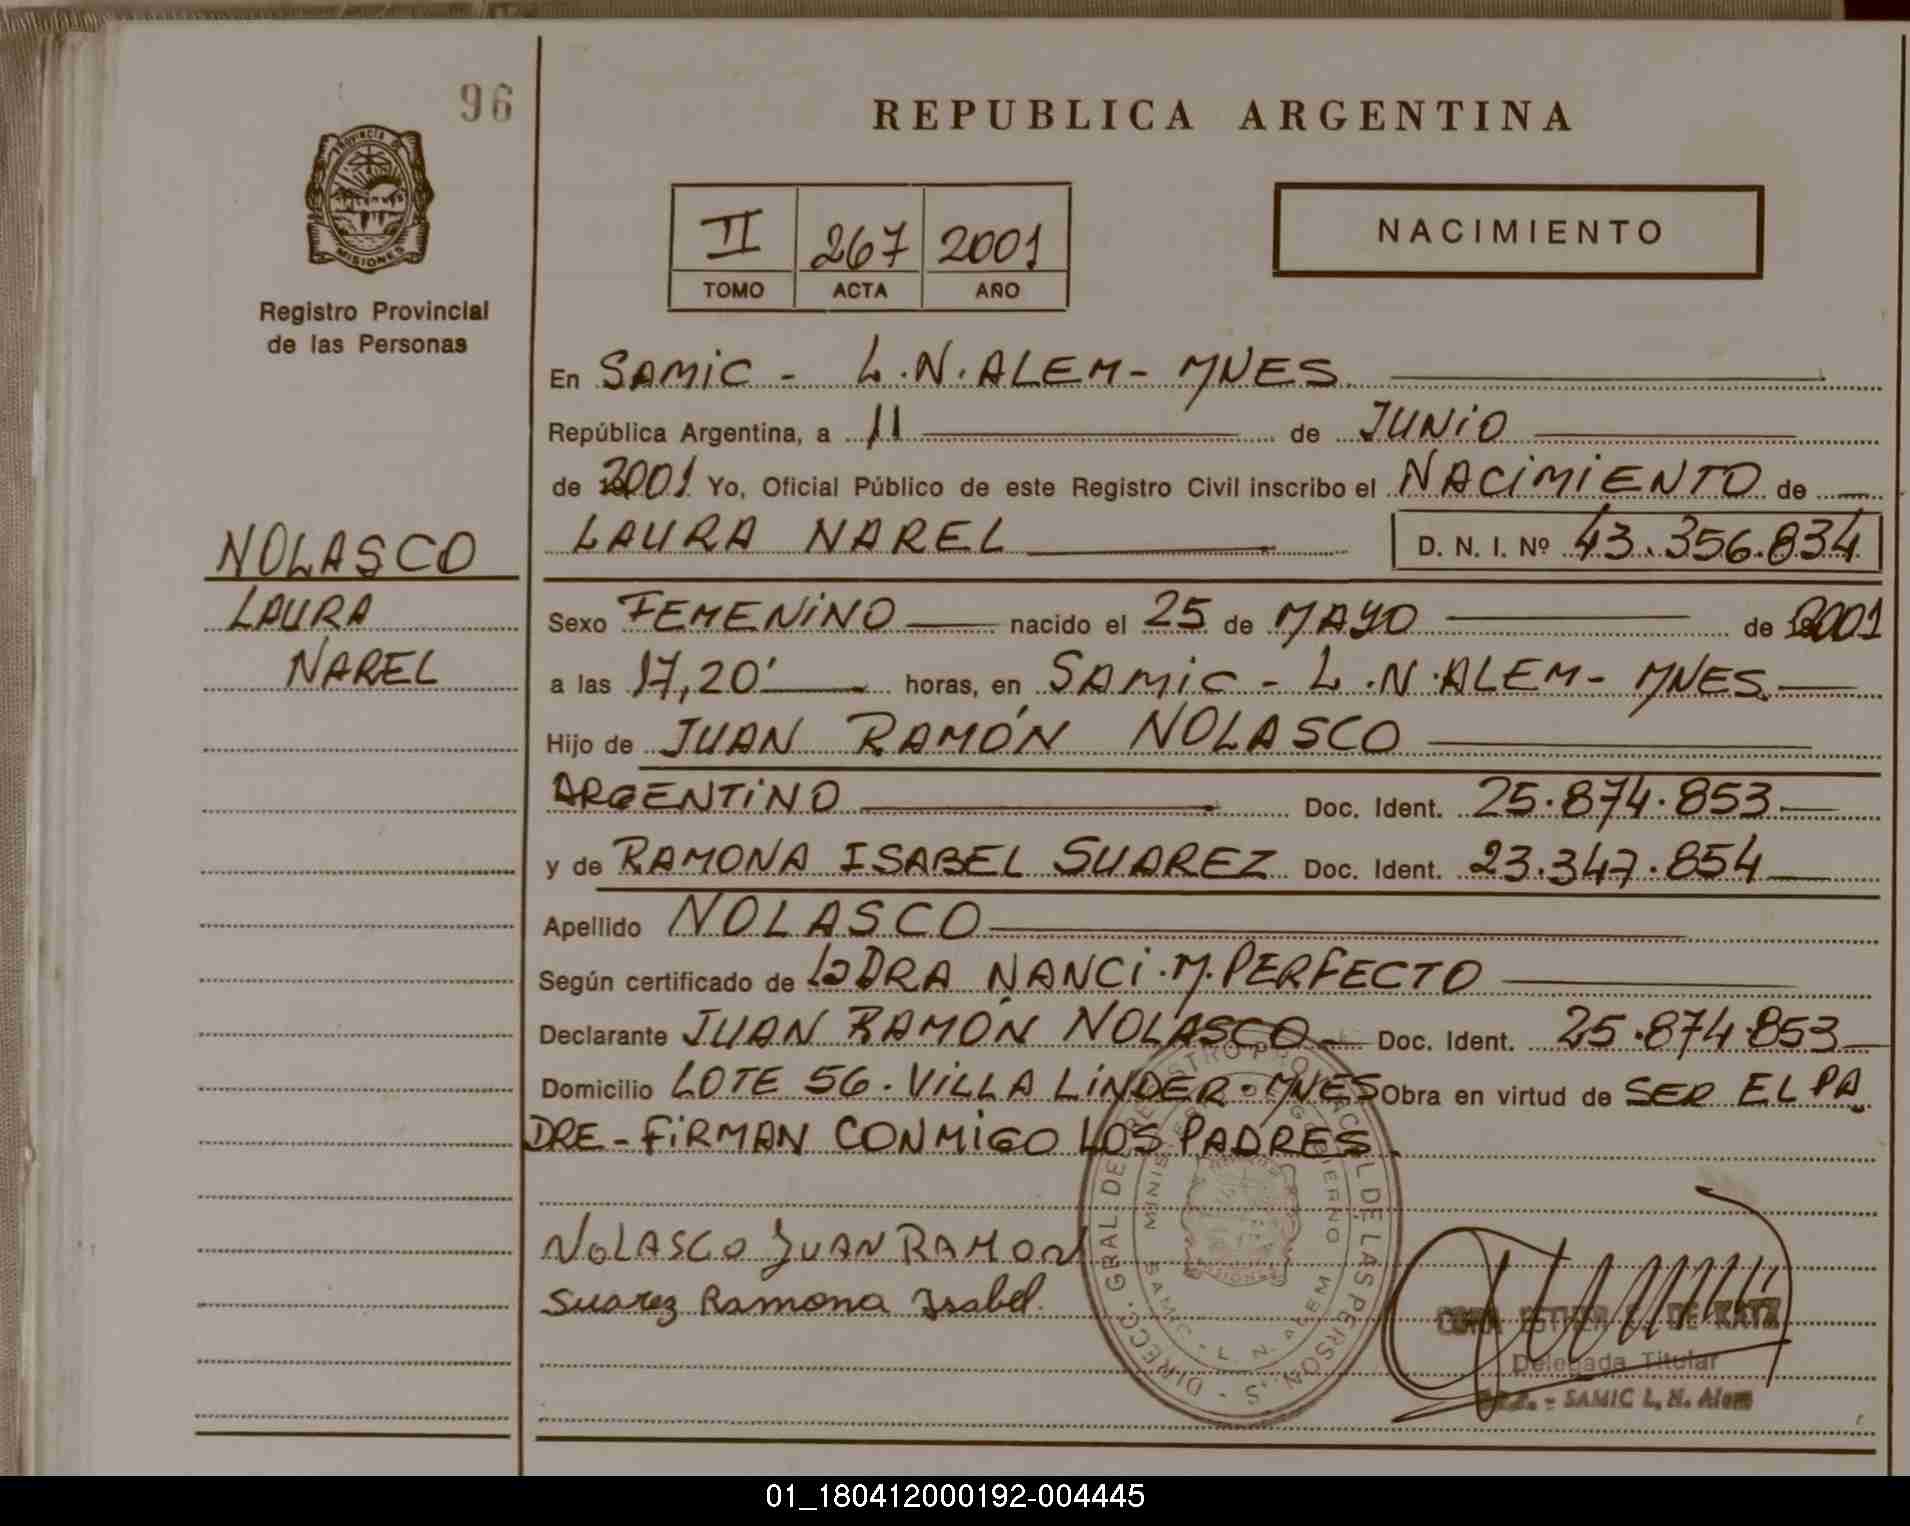 96
REPUBLICA ARGENTINA
PROVINCIA DE
MISIONES
Registro Provincial
de las Personas
II 267 2001
TOMO ACTA AÑO
NACIMIENTO
En SAMIC - L.N.ALEM - MNES
República Argentina, a 11 de JUNIO
de 2001 Yo, Oficial Público de este Registro Civil inscribo el NACIMIENTO de
LAURA NAREL D. N. I. Nº 43.356.834
NOLASCO
LAURA
NAREL
Sexo FEMENINO nacido el 25 de MAYO de 2001
a las 17,20' horas, en SAMIC - L.N.ALEM - MNES.
Hijo de JUAN RAMÓN NOLASCO
ARGENTINO Doc. Ident. 25.874.853
y de RAMONA ISABEL SUAREZ Doc. Ident. 23.347.854
Apellido NOLASCO
Según certificado de La DRA NANCI.M.PERFECTO
Declarante JUAN RAMÓN NOLASCO Doc. Ident. 25.874.853
Domicilio LOTE 56. VILLA LINDER. MNES Obra en virtud de SER EL PA
DRE - FIRMAN CONMIGO LOS PADRES.
NOLASCO JUAN RAMON
Suarez Ramona Isabel.
DIRECC. GRAL. DE REGISTRO PROVINCIAL DE LAS PERSONAS
MINISTERIO DE GOBIERNO
SAMIC - L. N. ALEM
MISIONES
ESTHER S. DE KATZ
Delegada Titular
- SAMIC L. N. Alem
01_180412000192-004445